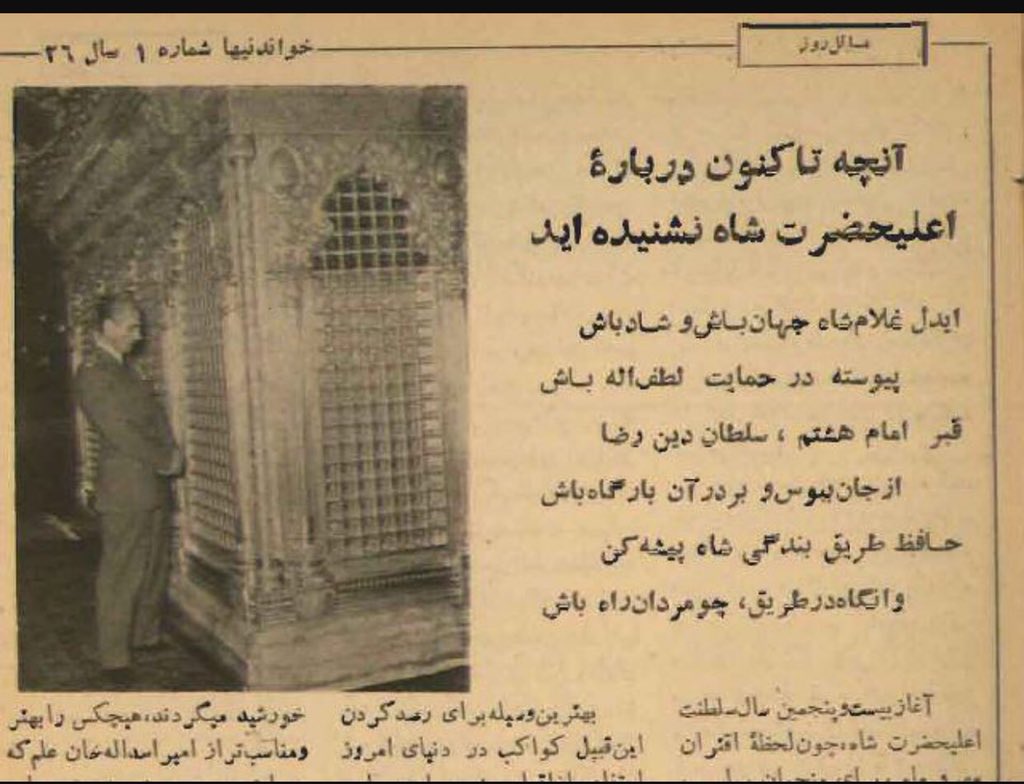 مسائل روز
خواندنیها شماره ۱ سال ۲۶
آنچه تا کنون دربارهٔ
اعلیحضرت شاه نشنیده اید
ایدل غلام شاه جهان باش و شاد باش
پیوسته در حمایت لطف اله باش
قبر امام هشتم ، سلطان دین رضا
از جان ببوس و بر در آن بارگاه باش
حافظ طریق بندگی شاه پیشه کن
وانگاه در طریق، چو مردان راه باش
آغاز بیست و پنجمین سال سلطنت
اعلیحضرت شاه، چون لحظهٔ اقتران
بهترین وسیله برای رصد کردن
این قبیل کواکب در دنیای امروز
خورشید میگردند، هیچکس را بهتر
ومناسب تر از امیر اسداله خان علم که